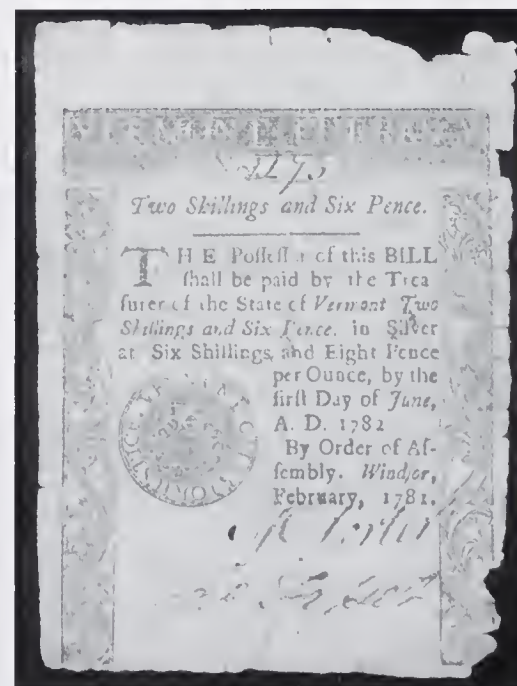 Two Shillings and Six Pence.
THE Poſſeſſor of this BILL
ſhall be paid by the Trea
ſurer of the State of Vermont Two
Shillings and Six Pence. in Silver
at Six Shillings, and Eight Pence
per Ounce, by the
firſt Day of June,
A. D. 1782
By Order of Aſ-
ſembly. Windſor,
February, 1781.